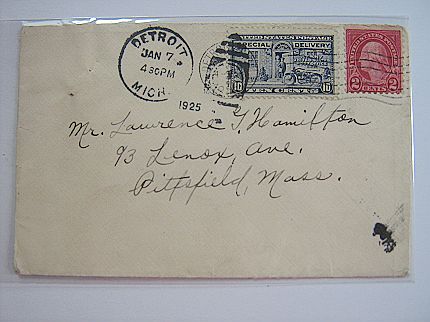 DETROIT
JAN 7
4 30 PM
MICH.
1925
UNITED STATES POSTAGE
SPECIAL DELIVERY
10 TEN CENTS 10
2 CENTS 2
Mr. Lawrence T. Hamilton
93 Lenox, Ave.
Pittsfield, Mass.